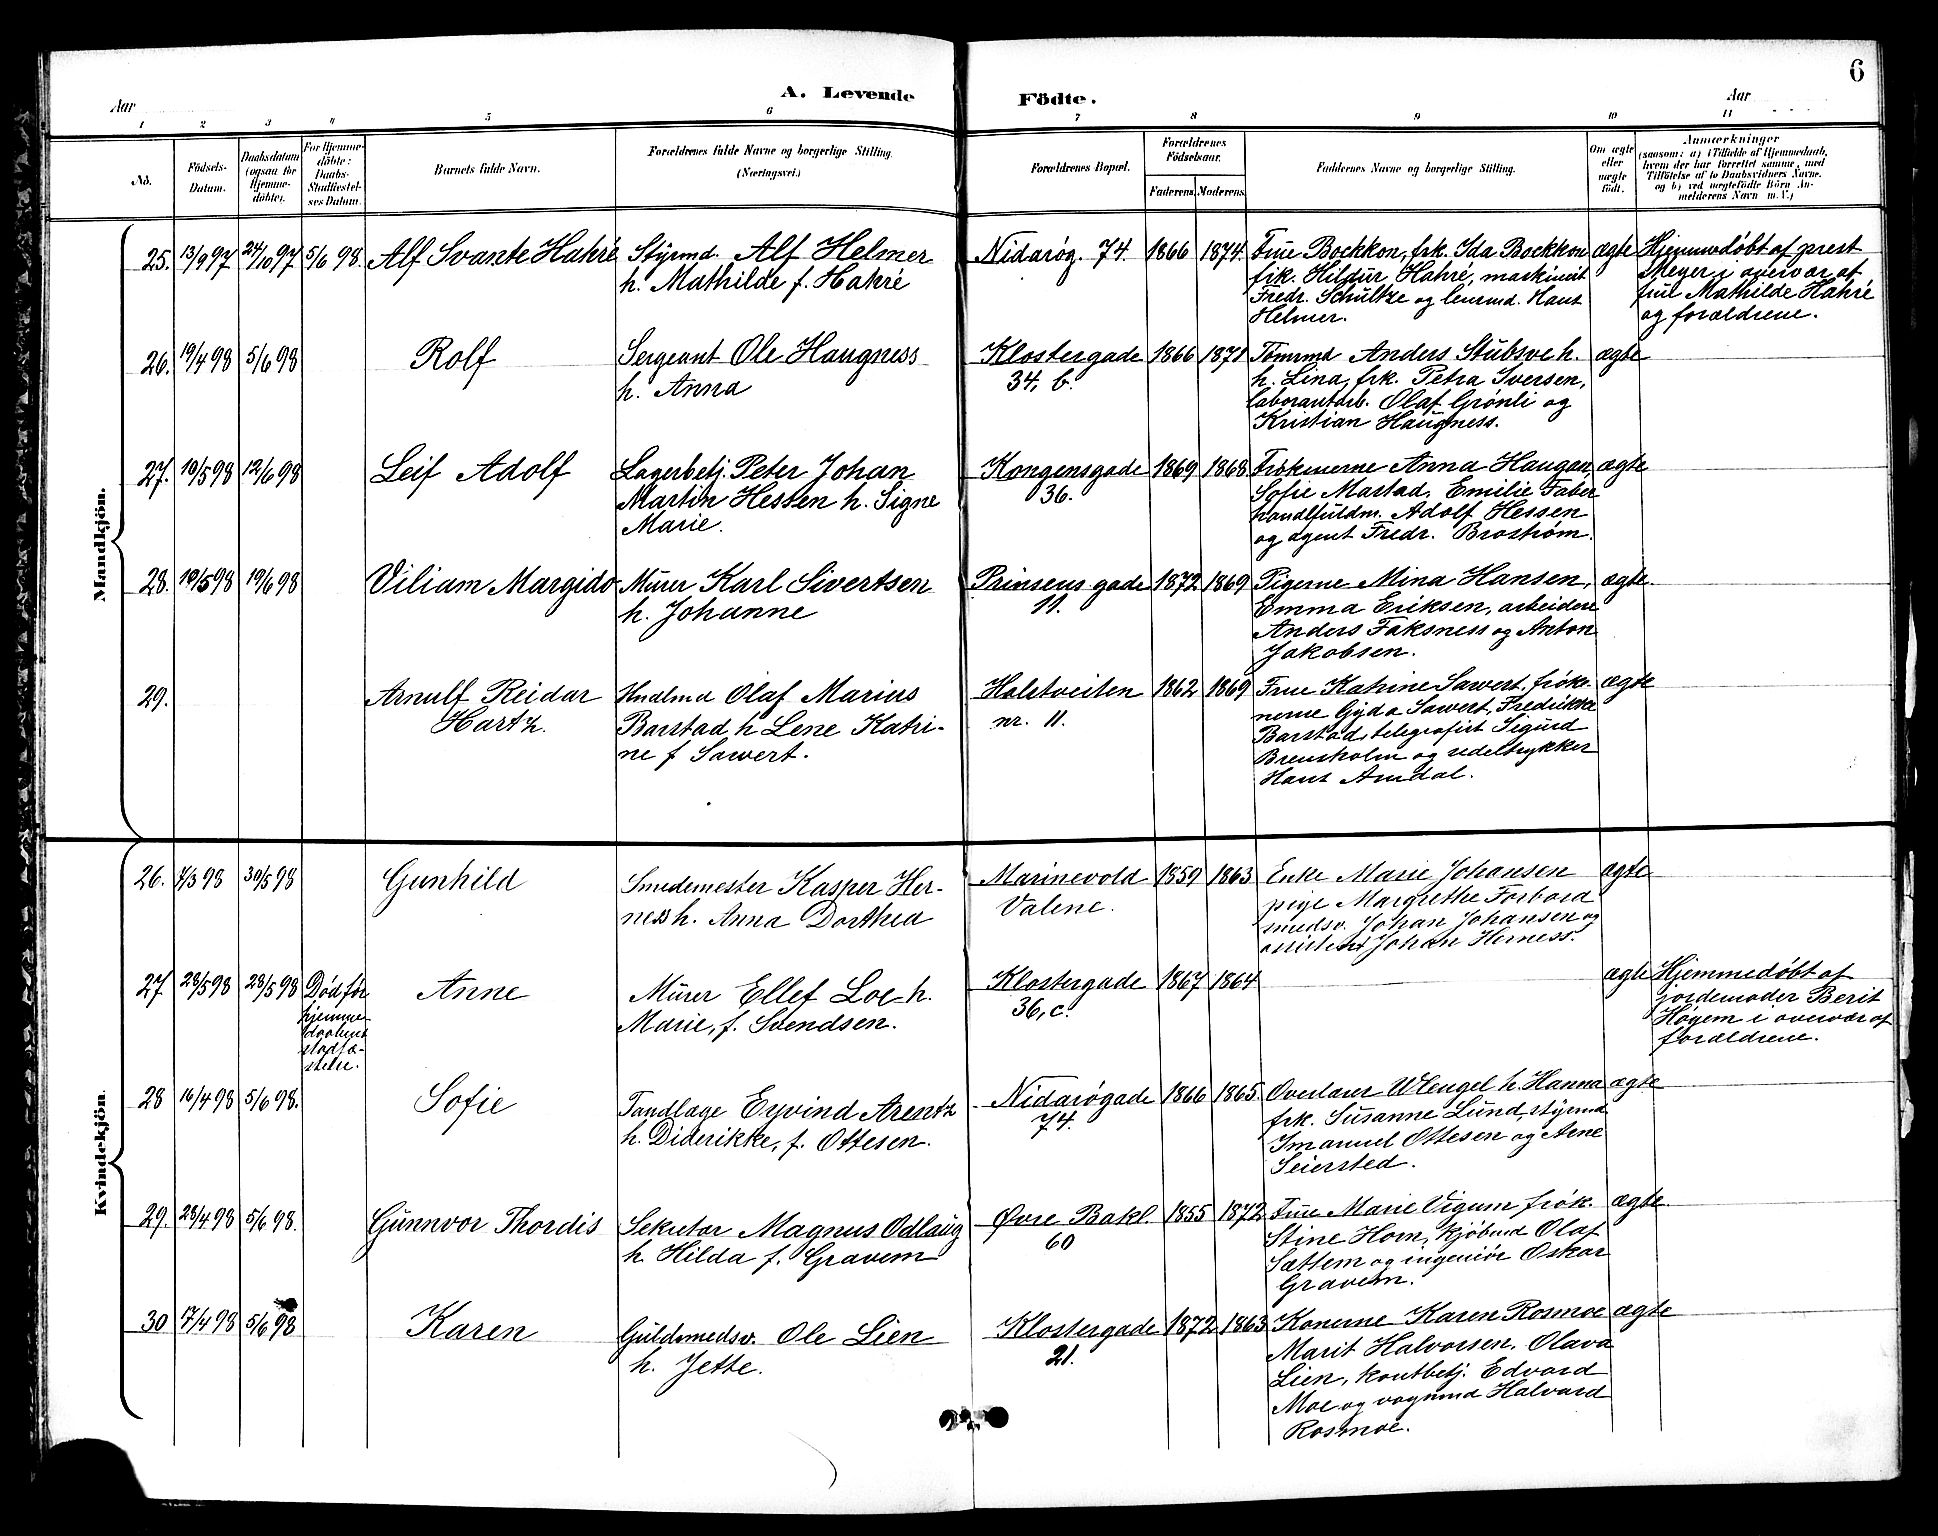 6
Aar
A. Levende
Födte.
Aar
1 2 3 4 5 6 7 8 9 10 11
No.
Födsels-
Datum.
Daabsdatum
(ogsaa for
Hjemme-
döbte).
For Hjemme-
döbte:
Daabs-
Stadfæstel-
ses Datum.
Barnets fulde Navn.
Forældrenes fulde Navne og borgerlige Stilling.
(Næringsvei.)
Forældrenes Bopæl.
Forældrenes
Födselsaar.
Faderens. Moderens.
Faddernes Navne og borgerlige Stilling.
Om ægte
eller
uægte
födt.
Anmærkninger
(saasom: a) i Tilfælde af Hjemmedaab,
hvem der har forrettet samme, med
Tilföielse af to Daabsvidners Navne.
og b) ved uægtefödte Börn An-
melderens Navn m. V.)
Mandkjön.
25. 13/9 97 24/10 97 5/6 98. Alf Svante Hahré
Styrmd. Alf Helmer
h. Mathilde f. Hahré
Nidarøg. 74. 1866 1874.
Frue Bockkon, frk. Ida Bockkon
frk. Hildur Hahré, maskinist
Fredr. Schultze og Hans
Helmer.
ægte
Hjemmedøbt af prest
Meyer i overvær af
frue Mathilde Hahré
og forældrene.
26. 19/4 98 5/6 98 Rolf
Sergeant Ole Haugness
h. Anna
Klostergade
34, b.
1866 1871
Tømmd Anders Stubsve h.
h. Lina, frk. Petra Iversen,
laborantarb. Olaf Grønli og
Kristian Haugness.
ægte
27. 10/5 98 12/6 98 Leif Adolf
Lagerbetj. Peter Johan
Martin Hessen h. Signe
Marie.
Kongensgade
36.
1869 1868
Frøknerne Anna Haugen
Sofie Mastad, Emilie Faber
handlfuldm. Adolf Hessen
og agent Fredr. Brostrøm.
ægte
28. 10/5 98 19/6 98 Viliam Margido
Murer Karl Sivertsen
h. Johanne
Prinsens gade
11.
1872 1869
Pigerne Mina Hansen,
Emma Eriksen, arbeidere
Anders Faksness og Anton
Jakobsen.
ægte.
29. Arnulf Reidar
Hartz.
Hndlmd Olaf Marius
Barstad h Lene Katri-
ne f Sawert.
Holstveiten
nr. 11.
1862 1869
Frue Katrine Sawert. frøke-
nerne Gyda Sawert, Fredrikke
Barstad, telegrafist Sigurd
Brensholm og sedeltrykker
Hans Amdal.
ægte
Kvindekjön.
26. 1/3 98 30/5 98 Gunhild
Smedemester Kasper Her-
ness h. Anna Dorthea
Marinevold
Valene.
1859 1863
Enke Marie Johansen
pige Margrethe Forbord
smedsv. Johan Johansen og
assistent Johan Herness.
ægte
27. 28/5 98 28/5 98 Død før
hjemme-
daabens
stadfæ-
stelse.
Anne
Murer Ellef Loe h.
Marie, f. Svendsen.
Klostergade
36, c.
1867 1864
ægte
Hjemmedøbt af
jordemoder Berit
Høyem i overvær af
forældrene.
28 16/4 98 5/6 98. Sofie
Tandlæge Eyvind Arentz
h. Diderikke, f. Ottesen.
Nidarøgade
74.
1866 1865.
Overlærer Wleugel h. Hanna
frk. Susanne Lund, styrmd
Imanuel Ottesen og Arne
Seiersted.
ægte
29. 28/4 98 5/6 98. Gunnvor Thordis
Sekretær Magnus Odlaug
h. Hilda f. Gravem
Øvre Bakl.
60
1855 1872
Frue Marie Vigum frøk.
Stine Horn, kjøbmd Olaf
Sættem og ingeniør Oskar
Gravem.
ægte.
30 17/4 98 5/6 98 Karen
Guldsmedsv. Ole Lien
h. Jette.
Klostergade
21.
1872 1863
Konerne Karen Rosmoe
Marit Halvorsen. Olava
Lien, kontbetj. Edvard
Moe og vognmd Halvard
Rosmoe.
ægte